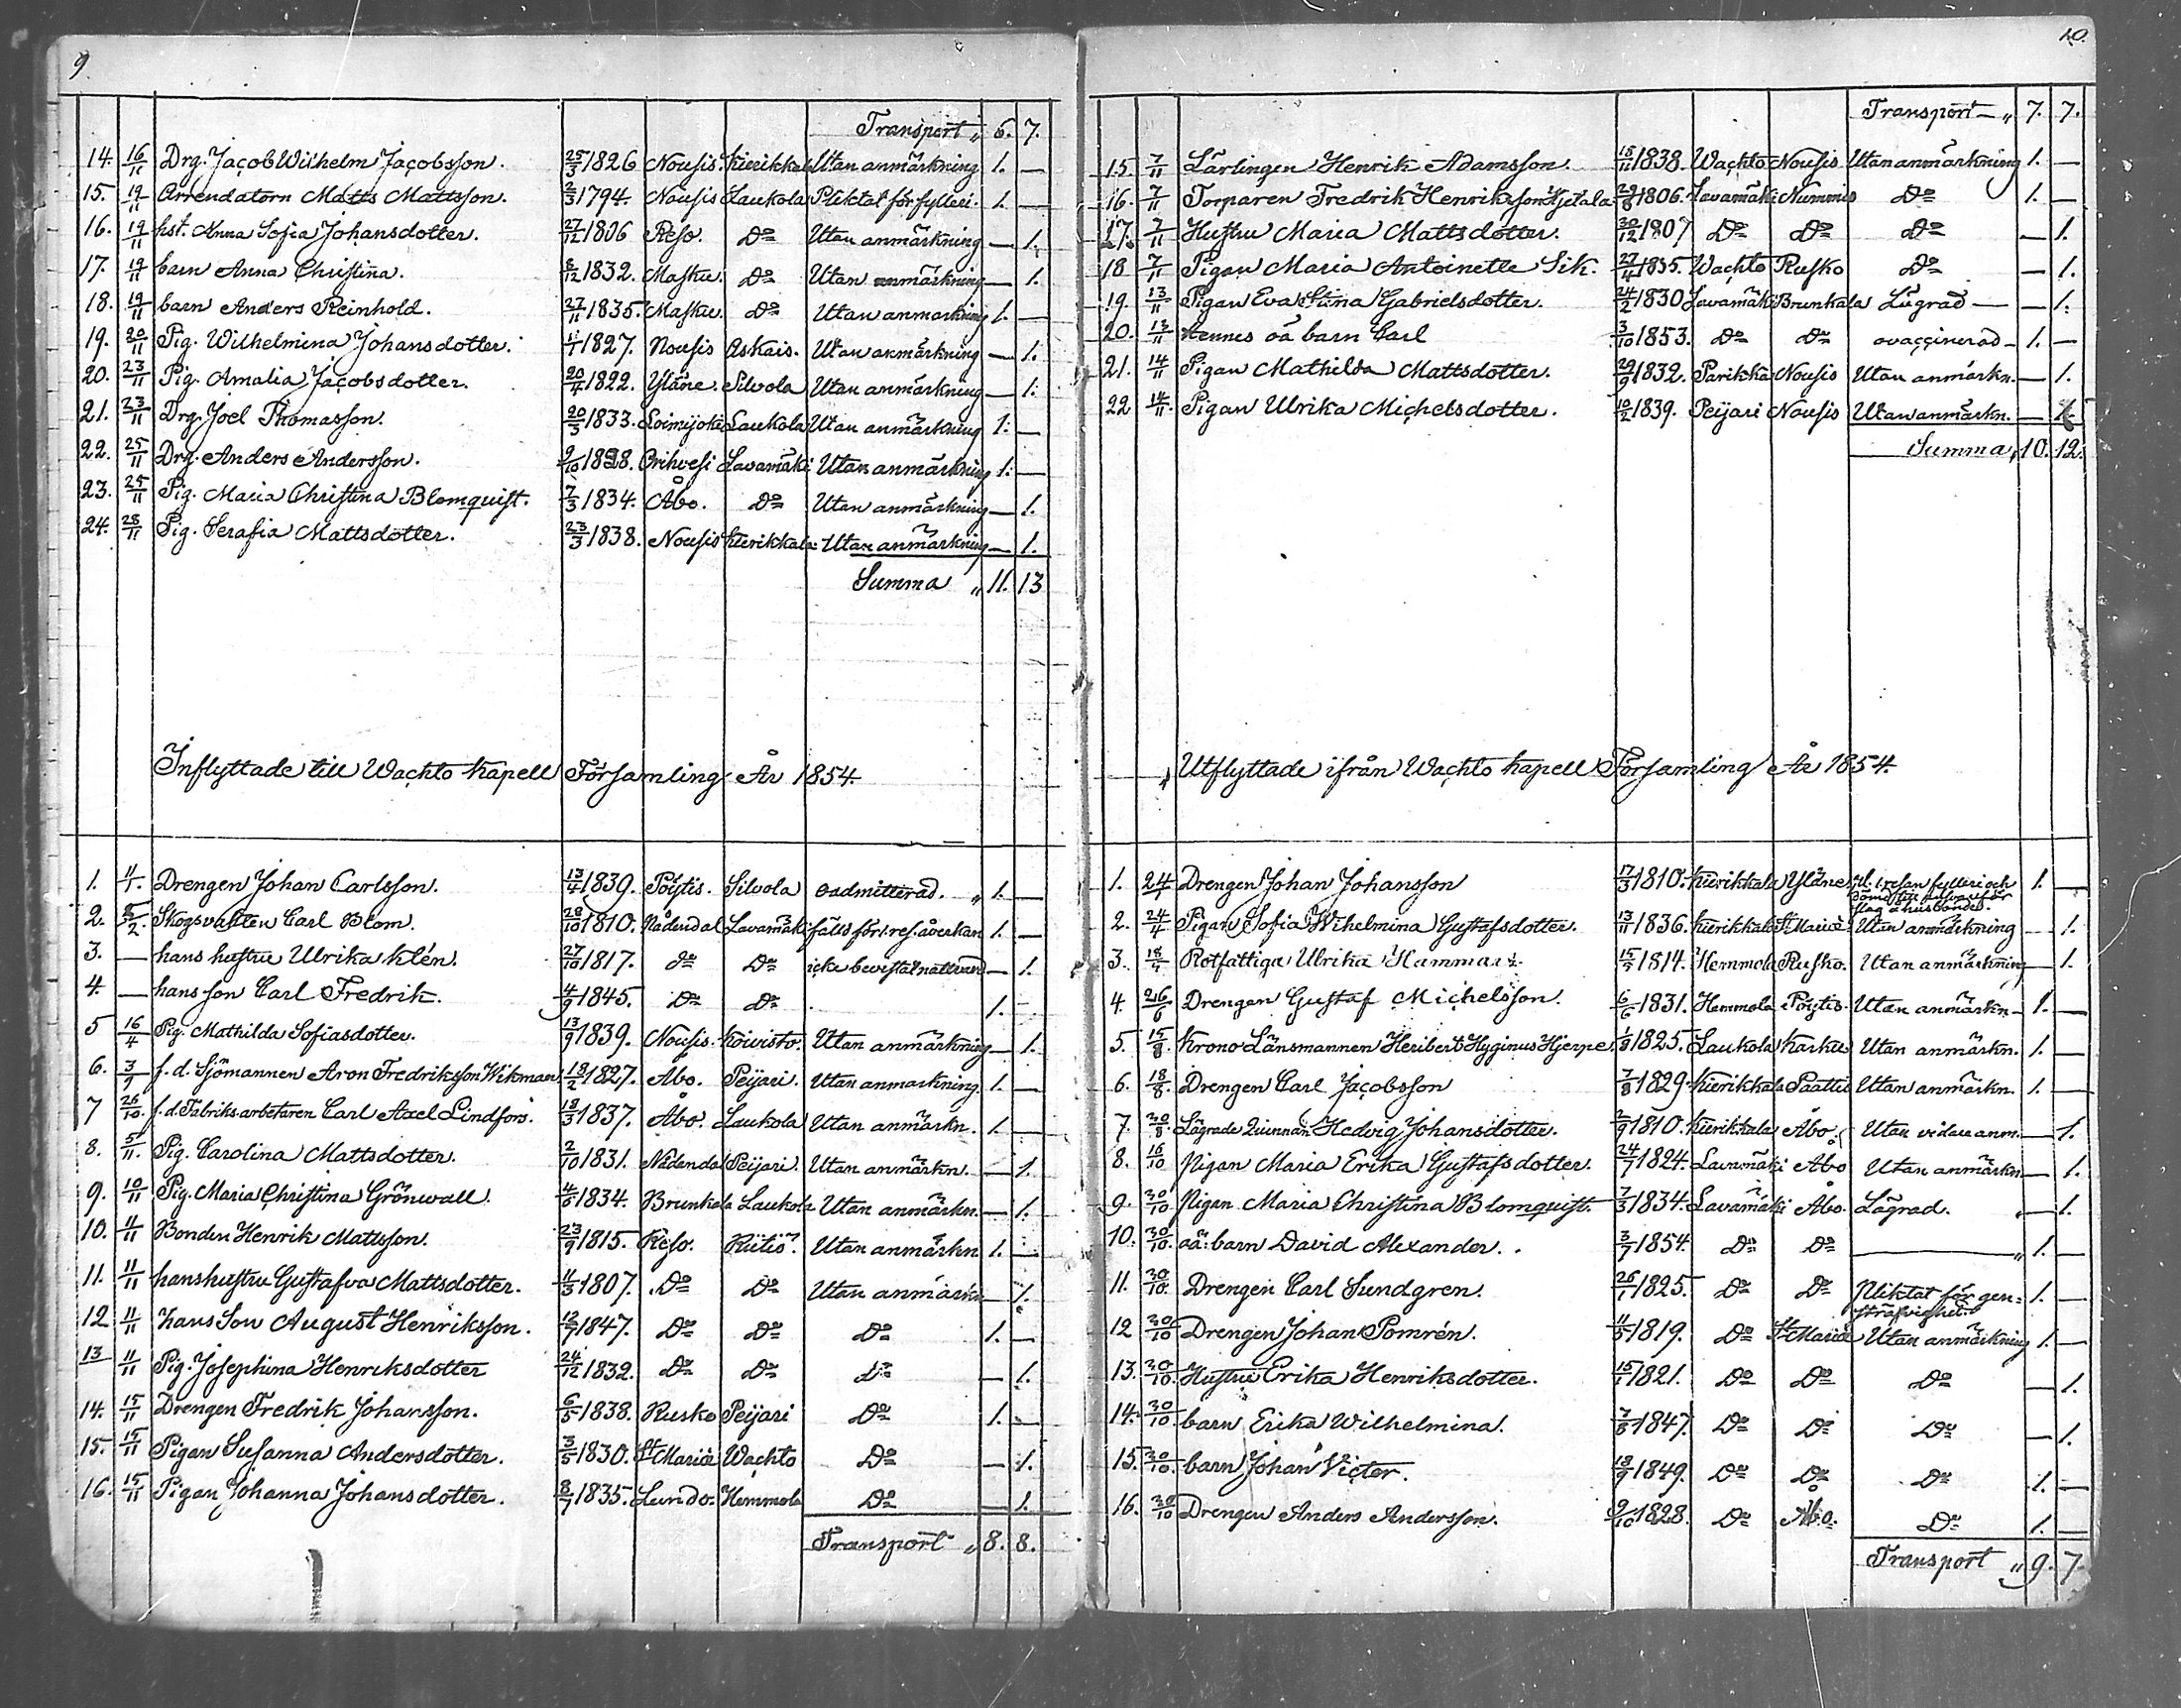 9.
Transport „ 6. 7.
14. 16/11 Drg. Jacob Wilhelm Jacobsson. 25/3 1826 Nousis Kierikkala Utan anmärkning 1. —
15. 19/11 Arrendatorn Matts Mattsson. 2/3 1794. Nousis Laukola Pliktat för fylleri. 1. —
16. 19/11 hst. Anna Sofia Johansdotter. 27/12 1806 Reso. Do Utan anmärkning — 1.
17. 19/11 barn Anna Christina. 8/12 1832. Masku. Do Utan anmärkning — 1.
18. 19/11 barn Anders Reinhold. 27/11 1835. Masku. Do Utan anmärkning 1. —
19. 20/11 Pig. Wilhelmina Johansdotter. 11/1 1827. Nousis Askais. Utan anmärkning — 1.
20. 23/11 Pig. Amalia Jacobsdotter. 20/4 1822. Yläne. Silvola Utan anmärkning — 1.
21. 23/11 Drg. Joel Thomasson. 20/3 1833. Loimijoki Laukola Utan anmärkning 1. —
22. 25/11 Drg. Anders Andersson. 9/10 1828. Orihvesi Lavamäki Utan anmärkning 1. —
23. 25/11 Pig. Maria Christina Blomquist. 7/3 1834. Åbo. Do Utan anmärkning — 1.
24. 28/11 Pig. Serafia Mattsdotter. 23/3 1838. Nousis Kierikkala Utan anmärkning — 1.
Summa „ 11. 13
Inflyttade till Wachto Kapell Församling År 1854.
1. 11/1. Drengen Johan Carlsson. 13/4 1839. Pöytis. Silvola oadmitterad. „ 1. —
2. 5/2. Skogsvakten Carl Blom. 28/10 1810. Nådendal Lavamäki fälld för 1. res. åverkan 1. —
3. — hans hustru Ulrika Klén. 27/10 1817. do Do icke bevistat nattvard — 1.
4. — hans son Carl Fredrik. 4/9 1845. Do Do 1. —
5 16/4 Pig. Mathilda Sofiasdotter. 13/9 1839. Nousis. Koivisto. Utan anmärkning — 1.
6. 3/9 f.d. Sjömannen Aron Fredriksson Wikman. 18/2 1827. Åbo. Peijari. Utan anmärkning. 1. —
7 26/10. f.d. Fabriksarbetaren Carl Axel Lindfors. 18/3 1837. Åbo. Laukola Utan anmärkn. 1. —
8. 5/11. Pig. Carolina Mattsdotter. 2/10 1831. Nådendal Peijari. Utan anmärkn. — 1.
9. 10/11 Pig. Maria Christina Grönwall. 4/6 1834. Brunkala Laukola Utan anmärkn. — 1.
10. 11/11 Bonden Henrik Mattsson. 23/9 1815. Reso. Riitiö. Utan anmärkn 1. —
11. 11/11 hans hustru Gustafva Mattsdotter. 11/3 1807. Do Do Utan anmärkn — 1.
12 11/11 hans Son August Henriksson. 12/7 1847. Do Do Do 1. —
13 11/11 Pig. Josephina Henriksdotter 24/12 1832. Do Do Do — 1.
14. 15/11 Drengen Fredrik Johansson. 6/5 1838. Rusko Peijari Do 1. —
15. 15/11 Pigan Susanna Andersdotter. 3/5 1830. St Mariæ Wachto Do — 1.
16. 15/11 Pigan Johanna Johansdotter. 8/7 1835. Lundo. Hemmola Do — 1.
Transport „ 8. 8.
10.
Transport — „ 7. 7.
15 7/11 Lärlingen Henrik Adamsson. 15/11 1838. Wachto Nousis Utan anmärkning 1. —
16. 7/11 Torparen Fredrik Henriksson Hjetala 29/8 1806. Lavamäki Nummis Do 1. —
17. 7/11 Hustru Maria Mattsdotter. 30/12 1807 Do Do Do — 1.
18 7/11 Pigan Maria Antoinette Sik. 27/4 1835. Wachto Rusko Do — 1.
19 13/11 Pigan Eva Stina Gabrielsdotter. 24/2 1830 Lavamäki Brunkala Lägrad — — 1.
20. 13/11 Hennes oä barn Carl 3/10 1853. Do Do ovaccinerad — 1. —
21. 14/11 Pigan Mathilda Mattsdotter. 29/9 1832. Parikka Nousis Utan anmärkn. — 1.
22 14/11. Pigan Ulrika Michelsdotter. 10/2 1839. Peijari Nousis Utan anmärkn. — 1.
Summa „ 10. 12.
Utflyttade ifrån Wachto Kapell Församling År 1854.
1. 24/1 Drengen Johan Johansson 17/3 1810. Kierikkala Yläne. 1. resan fylleri och 1. —
slag å husbonde.
2. 24/4 Pigan Sofia Wilhelmina Gustafsdotter. 13/11 1836. Kierikkala St Mariæ Utan anmärkning — 1.
3. 18/4 Rotfattiga Ulrika Hammar. 15/5 1814. Hemmola Rusko. Utan anmärkning — 1.
4. 26/6 Drengen Gustaf Michelsson. 6/6 1831. Hemmola Pöytis. Utan anmärkn. 1. —
5. 15/8. Krono Länsmannen Heribert Hyginus Hjerpe. 1/9 1825. Laukola Karkus Utan anmärkn. 1. —
6. 18/8. Drengen Carl Jacobsson 7/8 1829. Kierikkala Paattis Utan anmärkn. 1. —
7. 30/8 Lägrade Quinnan Hedvig Johansdotter. 2/9 1810. Kierikkala Åbo. Utan vidare anm. — 1.
8. 16/10 Pigan Maria Erika Gustafsdotter. 24/7 1824. Lavamäki Åbo Utan anmärkn — 1.
9. 30/10 Pigan Maria Christina Blomquist. 7/3 1834. Lavamäki Åbo. Lägrad. „ — 1.
10. 30/10. oä: barn David Alexander. 3/7 1854. Do Do — „ 1. —
11. 30/10. Drengen Carl Sundgren. 26/1 1825. Do Do Pliktat för gen- 1. —
sträfvighet
12 30/10 Drengen Johan Pomrén. 11/5 1819. Do St Mariæ Utan anmärkning 1. —
13. 30/10. Hustru Erika Henriksdotter. 15/1 1821. Do Do Do — 1.
14. 30/10. barn Erika Wilhelmina. 7/8 1847. Do Do Do — 1.
15. 30/10. barn Johan Victor. 18/9 1849. Do Do Do 1. —
16. 30/10 Drengen Anders Andersson. 9/10 1828. Do Åbo. Do 1. —
Transport „ 9. 7.